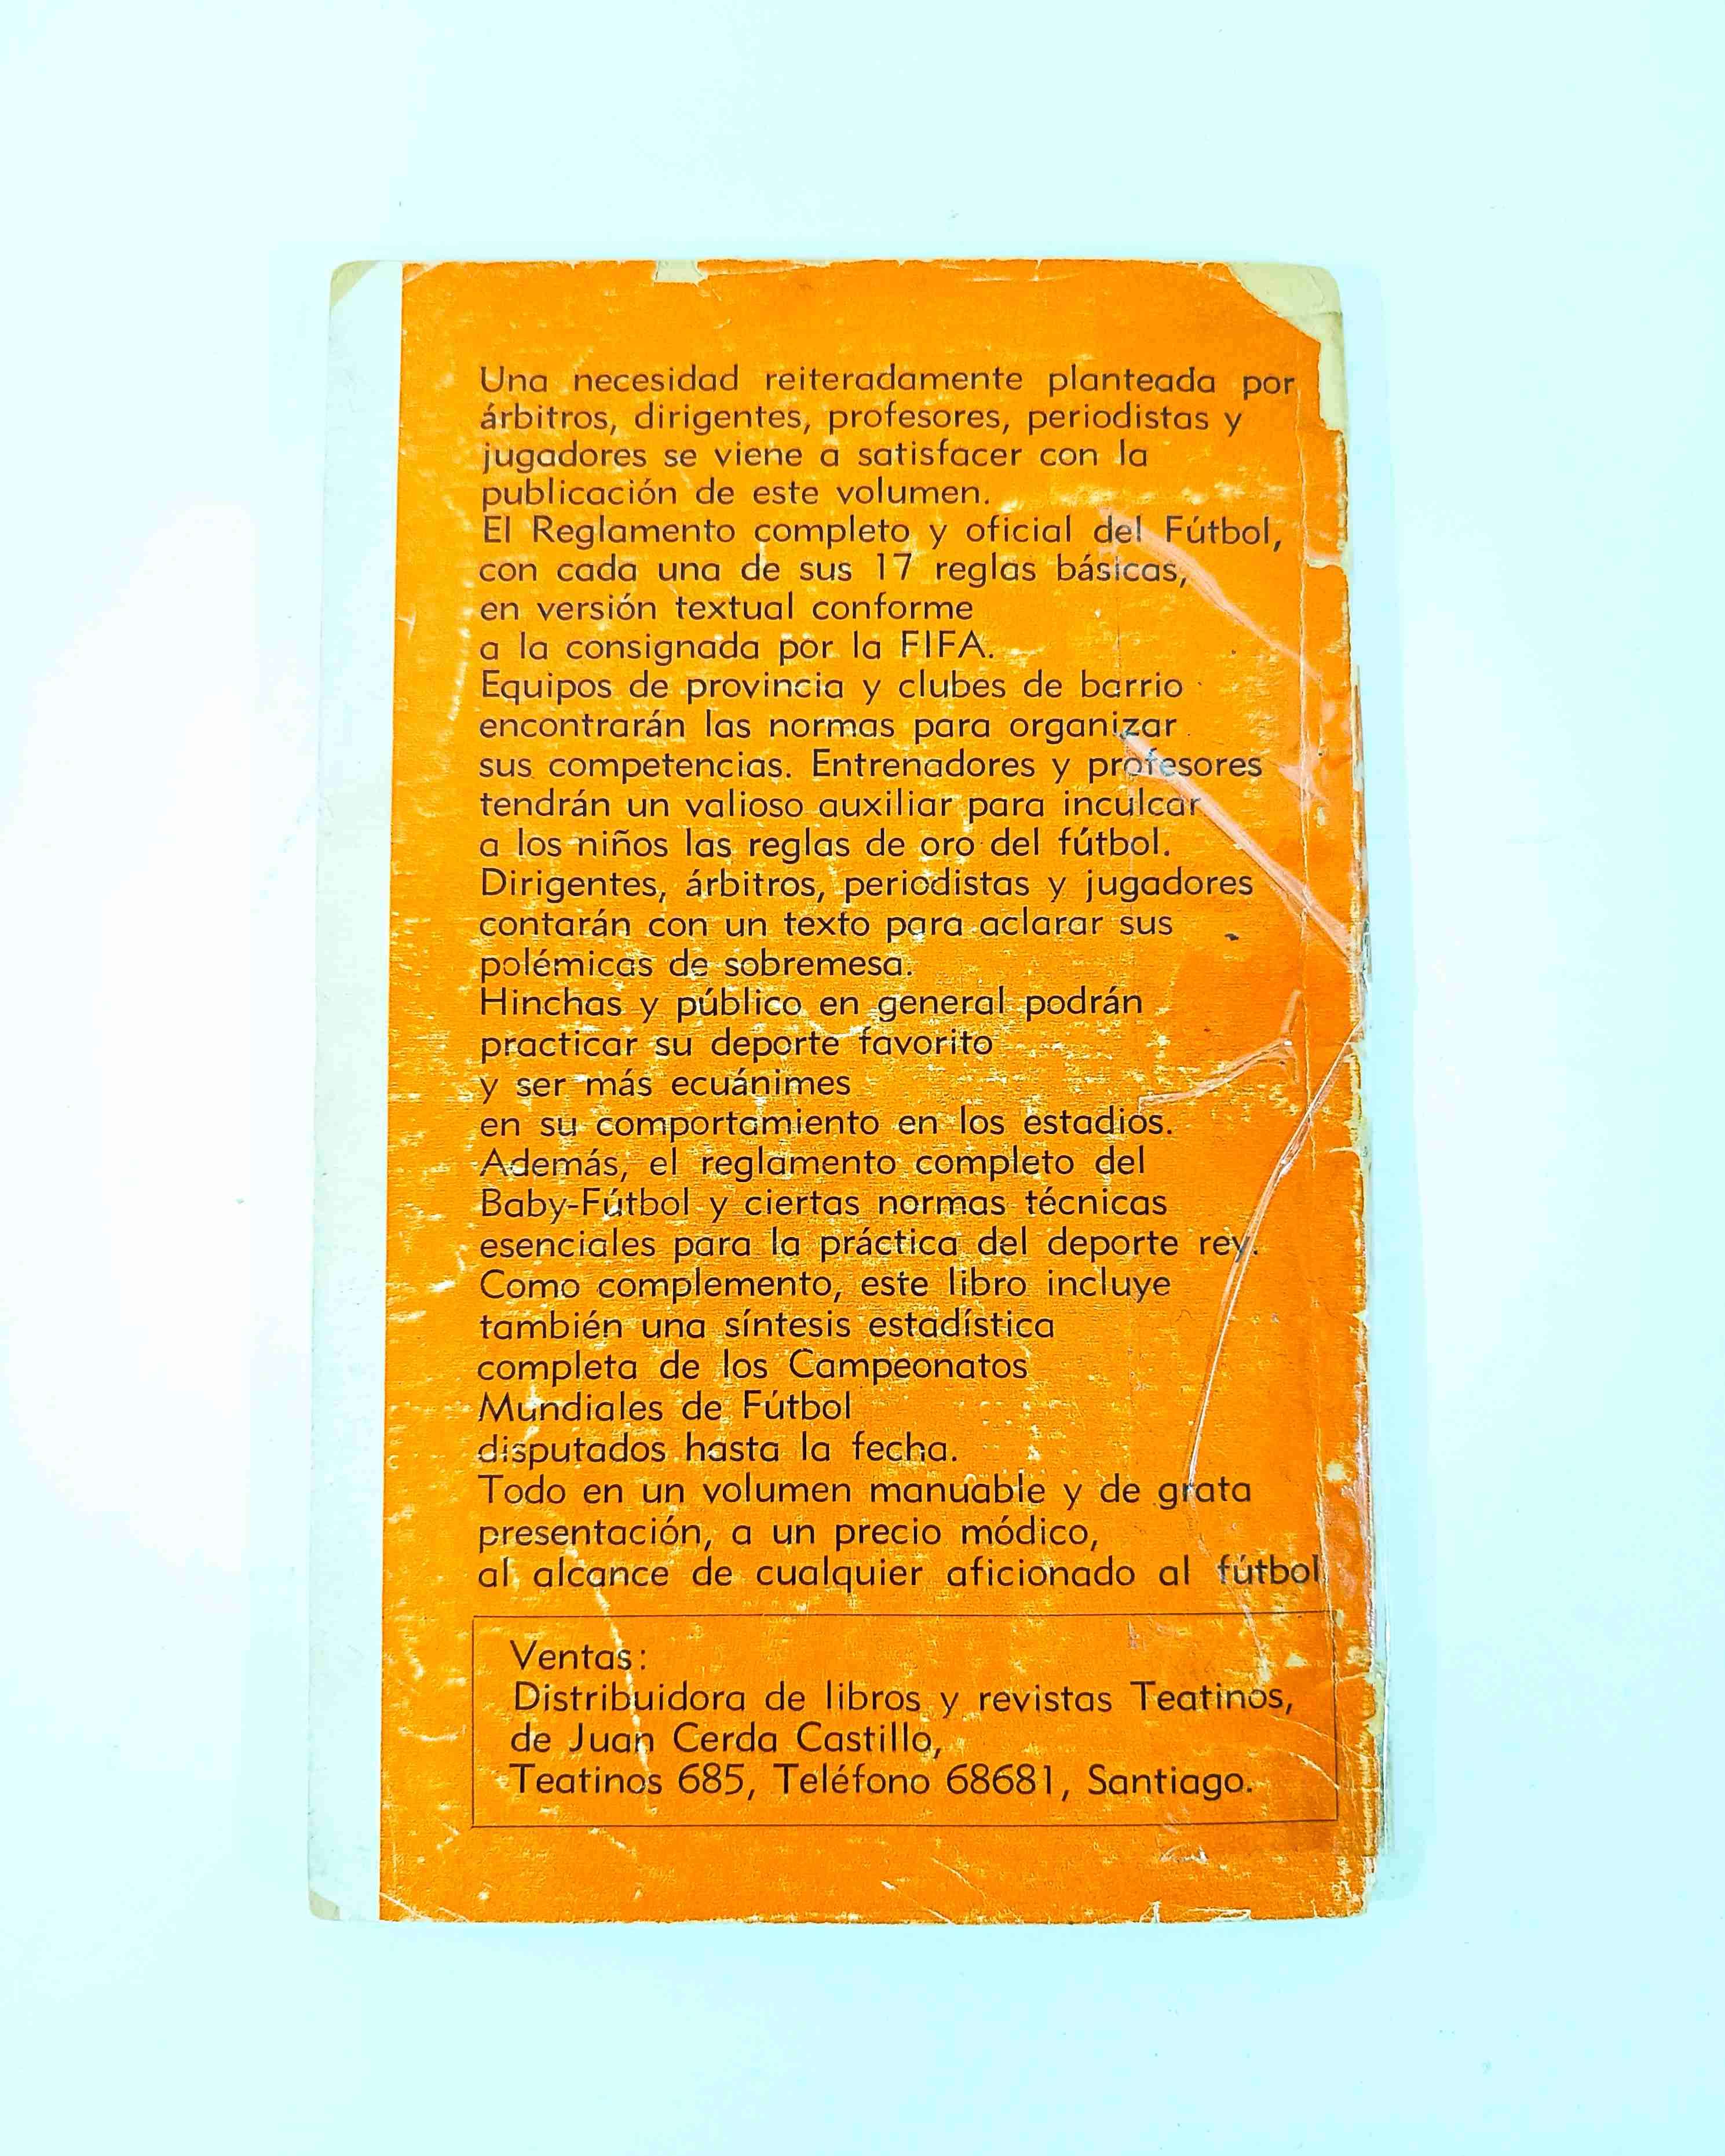 Una necesidad reiteradamente planteada por
árbitros, dirigentes, profesores, periodistas y
jugadores se viene a satisfacer con la
publicación de este volumen.
El Reglamento completo y oficial del Fútbol,
con cada una de sus 17 reglas básicas,
en versión textual conforme
a la consignada por la FIFA.
Equipos de provincia y clubes de barrio
encontrarán las normas para organizar
sus competencias. Entrenadores y profesores
tendrán un valioso auxiliar para inculcar
a los niños las reglas de oro del fútbol.
Dirigentes, árbitros, periodistas y jugadores
contarán con un texto para aclarar sus
polémicas de sobremesa.
Hinchas y público en general podrán
practicar su deporte favorito
y ser más ecuánimes
en su comportamiento en los estadios.
Además, el reglamento completo del
Baby-Fútbol y ciertas normas técnicas
esenciales para la práctica del deporte rey.
Como complemento, este libro incluye
también una síntesis estadística
completa de los Campeonatos
Mundiales de Fútbol
disputados hasta la fecha.
Todo en un volumen manuable y de grata
presentación, a un precio módico,
al alcance de cualquier aficionado al fútbol
Ventas:
Distribuidora de libros y revistas Teatinos,
de Juan Cerda Castillo,
Teatinos 685, Teléfono 68681, Santiago.